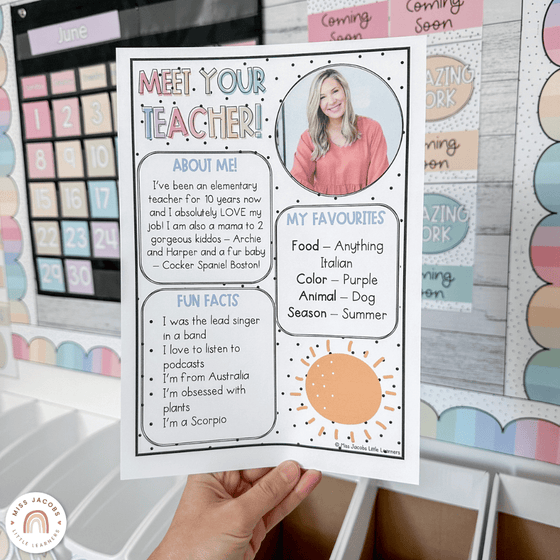 June
Coming Soon
Coming Soon
MEET YOUR
TEACHER!
ABOUT ME!
I've been an elementary
teacher for 10 years now
and I absolutely LOVE my
job! I am also a mama to 2
gorgeous kiddos – Archie
and Harper and a fur baby
– Cocker Spaniel Boston!
FUN FACTS
• I was the lead singer
in a band
• I love to listen to
podcasts
• I'm from Australia
• I'm obsessed with
plants
• I'm a Scorpio
MY FAVOURITES
Food – Anything
Italian
Color – Purple
Animal – Dog
Season – Summer
© Miss Jacobs Little Learners
1 2 3
8 9 10
15 16 17
22 23 24
29 30
WORK
coming
Soon
AMAZING
WORK
coming
Soon
MISS JACOBS
LITTLE LEARNERS